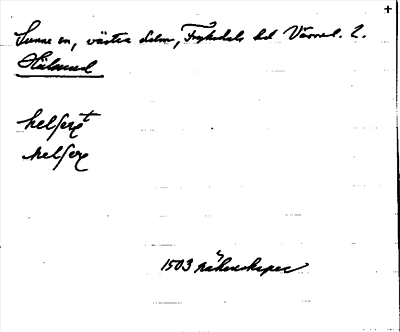 +
Sunne sn, västra delen, Fryksdals hd Värml. l.
Hälserud
helserett
helsere
1503 räkenskaper